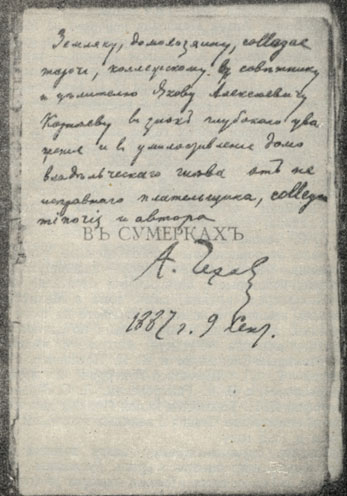 Земляку, домохозяину, collegae
тароки, коллежскому советнику
и целителю Якову Алексеевичу
Корнееву в знакъ глубокого ува
жения и в умилостивление домо
владельческого гнева отъ не
исправного плательщика, collegae
и автора
ВЪ СУМЕРКАХЪ
А. Чехов
1887 г. 9 Сент.